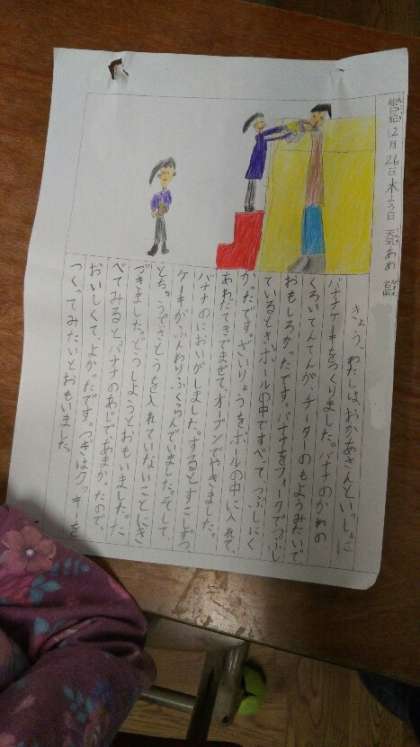 12月26日木よう日 天気 あめ
きょう、わたしはおかあさんといっしょに
バナナケーキをつくりました。バナナのかわの
くろいてんてんが、チーターのもようみたいで
おもしろかったです。バナナをフォークでつぶし
ているとき、ボールの中ですべって、つぶしにく
かったです。ざいりょうをボールの中に入れて、
あわだてきでまぜて、オーブンでやきました。
バナナのにおいがしました。するとすこしずつ
ケーキがふんわりふくらんでいました。そして
とちゅうでさとうを入れていないことにき
づきました。どうしようとおもいました。た
べてみると、バナナのあじであまかったので、
おいしくて、よかったです。つぎはクッキーを
つくってみたいとおもいました。